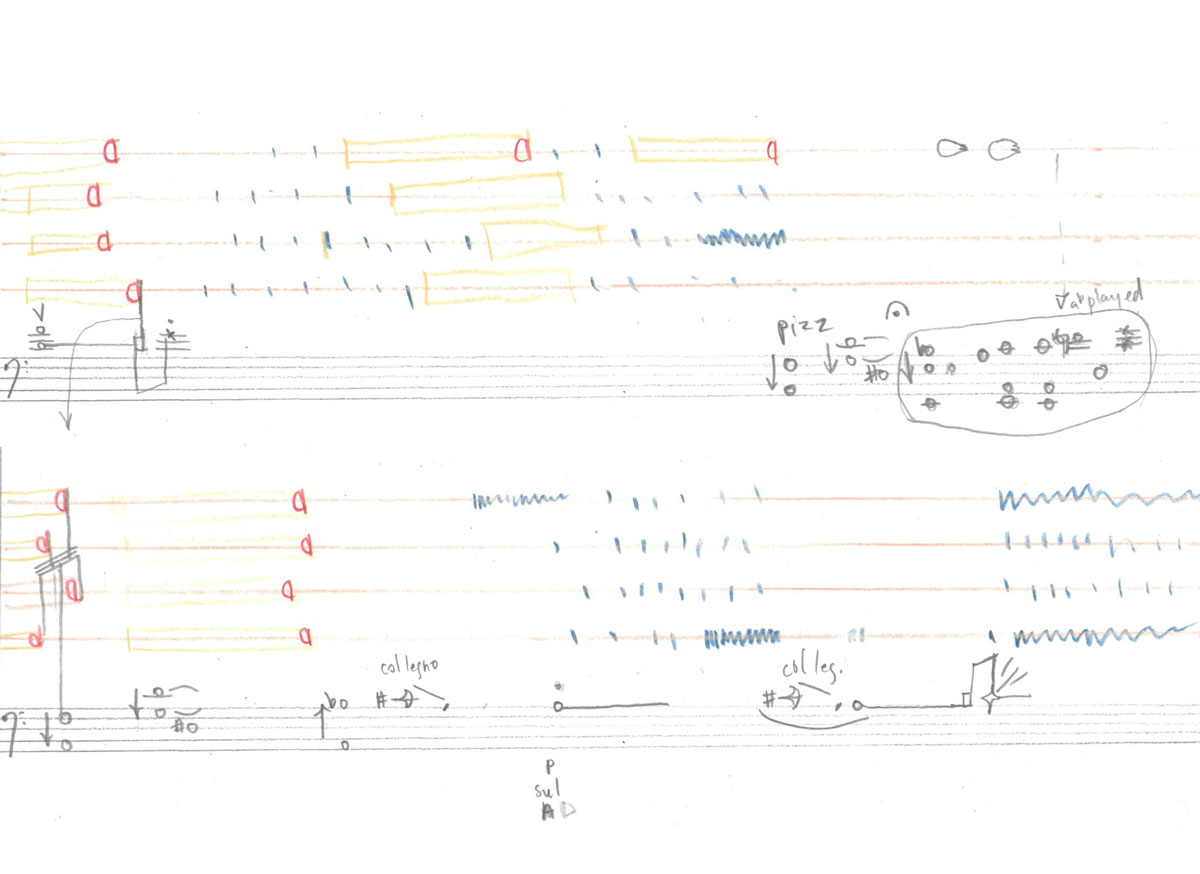 pizz
as played
col legno
col leg.
p
sul
A D